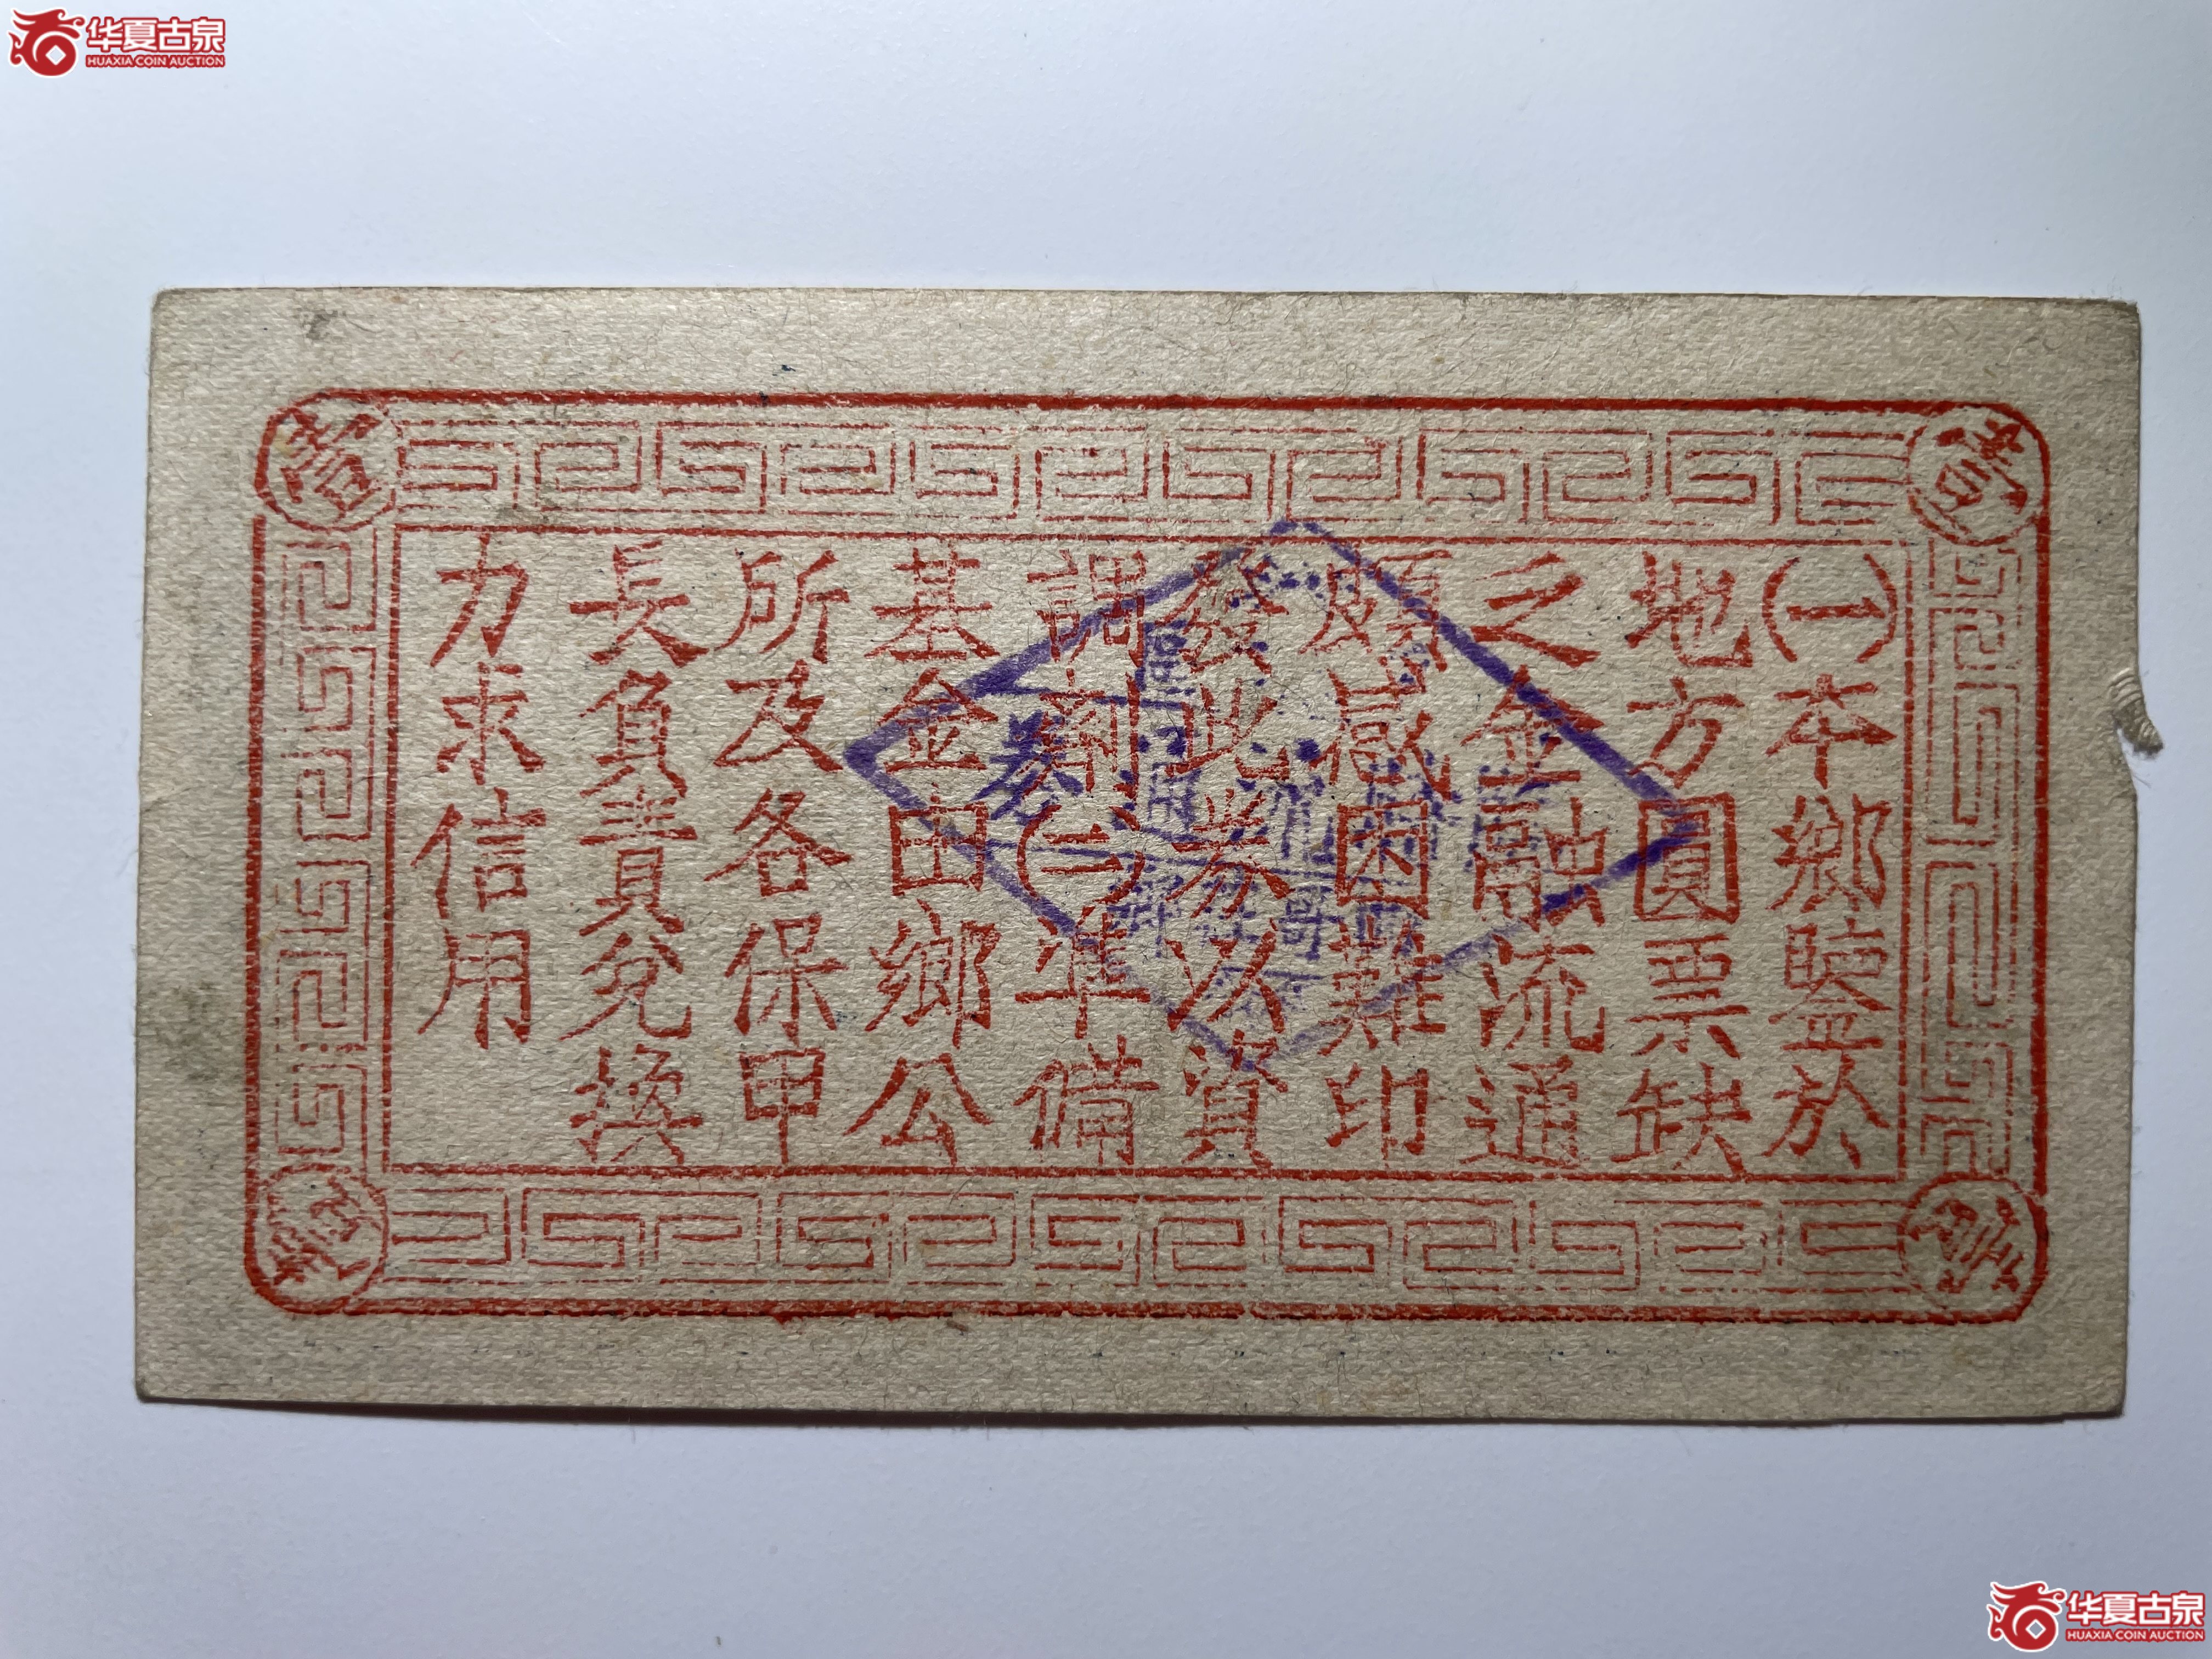 华夏古泉
HUAXIA COIN AUCTION
壹
壹
㈠本鄉鑒於
地方圓票缺
乏金融流通
頗感困難印
發此券以資
調劑㈡準備
基金由鄉公
所及各保甲
長負責兌換
力求信用
券
华夏古泉
HUAXIA COIN AUCTION